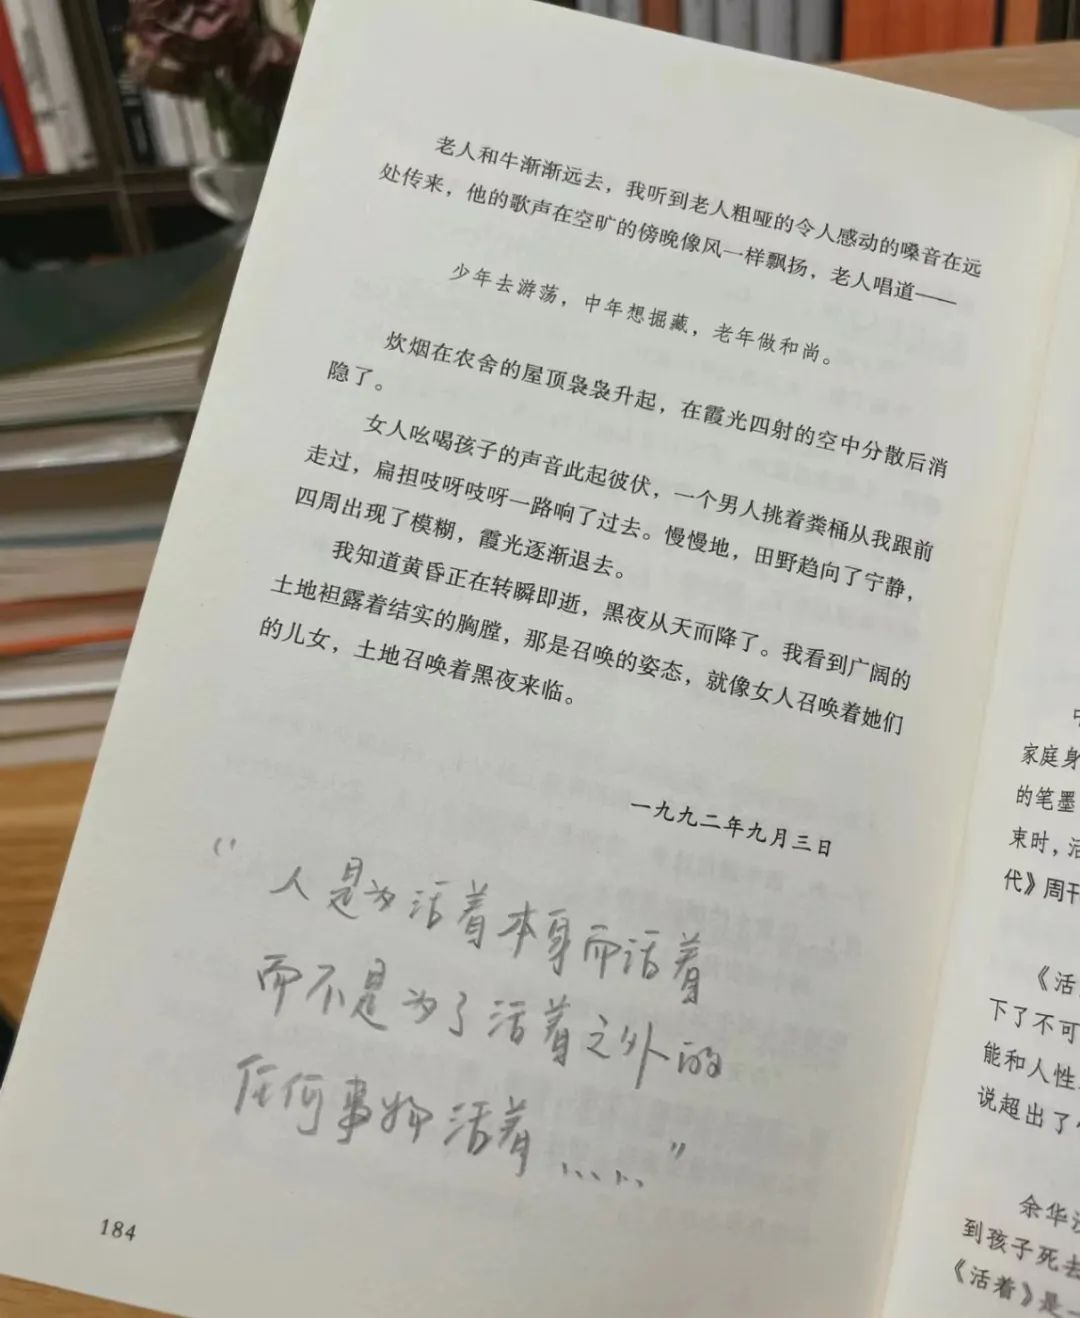 老人和牛渐渐远去，我听到老人粗哑的令人感动的嗓音在远
处传来，他的歌声在空旷的傍晚像风一样飘扬，老人唱道——
少年去游荡，中年想掘藏，老年做和尚。
炊烟在农舍的屋顶袅袅升起，在霞光四射的空中分散后消
隐了。
女人吆喝孩子的声音此起彼伏，一个男人挑着粪桶从我跟前
走过，扁担吱呀吱呀一路响了过去。慢慢地，田野趋向了宁静，
四周出现了模糊，霞光逐渐退去。
我知道黄昏正在转瞬即逝，黑夜从天而降了。我看到广阔的
土地袒露着结实的胸膛，那是召唤的姿态，就像女人召唤着她们
的儿女，土地召唤着黑夜来临。
一九九二年九月三日
“人是为活着本身而活着
而不是为了活着之外的
任何事物活着……”
184
家庭身
的笔墨
束时，活
代》周刊
《活
下了不可
能和人性
说超出了
余华
到孩子死去
《活着》是一